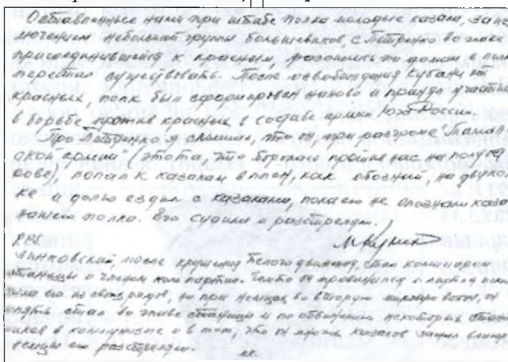 Оставленные нами при штабе полка молодые казаки, за исклю-
чением небольшой группы большевиков, с Петренко во главе
присоединившейся к красным, разошлись по домам и полк
перестал существовать. После освобождения Кубани от
красных, полк был сформирован наново и принял участие
в борьбе против красных в составе армии Юга России.
Про Петренко я слышал, что он, при разгроме Таман-
ской армии (этота, что боролась против нас на полуост-
рове), попал к казакам в плен, как обозный, на двукол-
ке и долго ездил с казаками, пока его не опознали казаки
нашего полка. Его судили и расстреляли.
P.S.
Зинковский, после крушения Белого движения, стал комиссаром
станицы и членом компартии. Чем-то он провинился и партия
его из своих рядов, но при немцах во вторую мировую войну, он
опять стал во главе станицы и по обвинению некоторых
в коммунизме и в том, что он многих казаков
немцы его расстреляли.